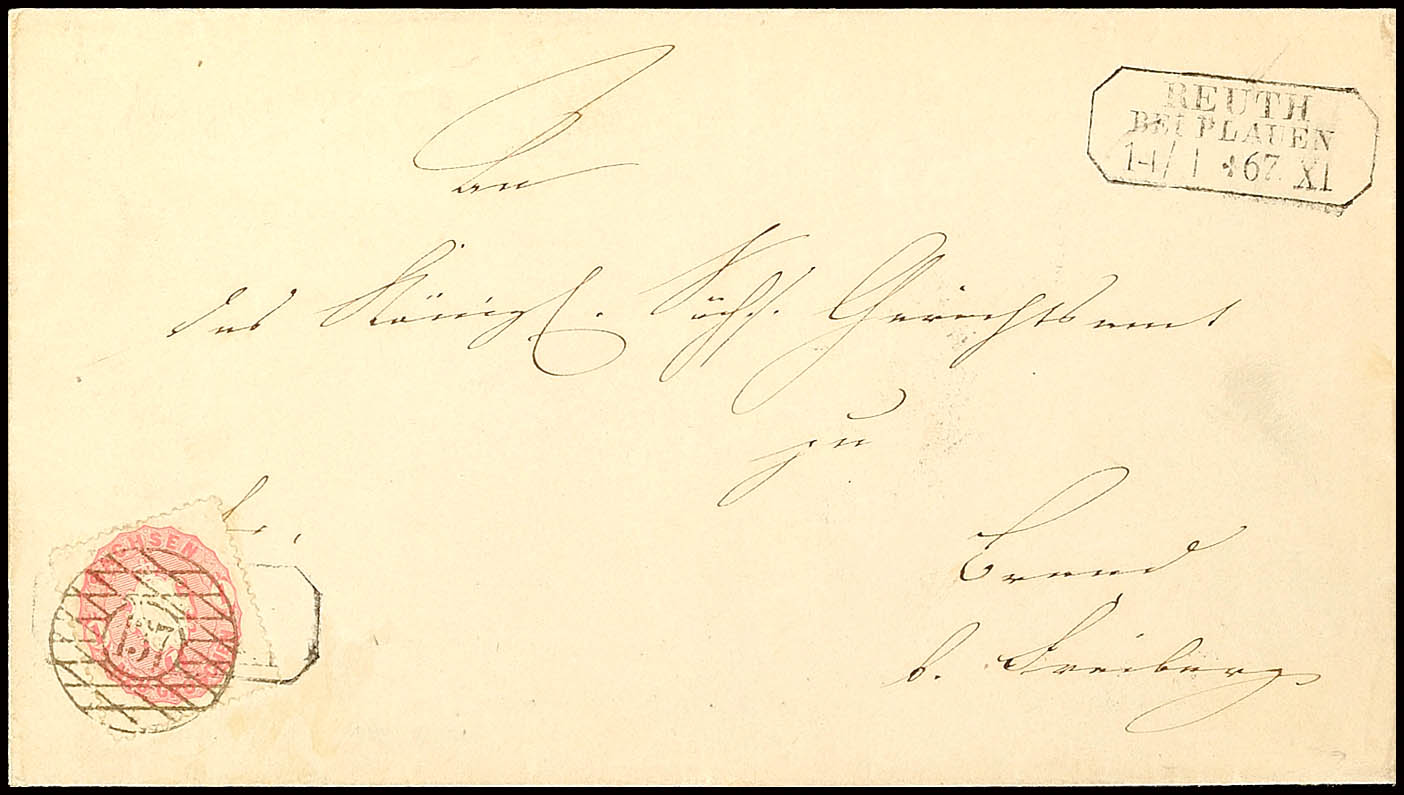 REUTH
BEI PLAUEN
14/1 67. XI
An
das Königl. Sächs. Gerichtsamt
zu
Brand
b. Freiberg
SACHSEN